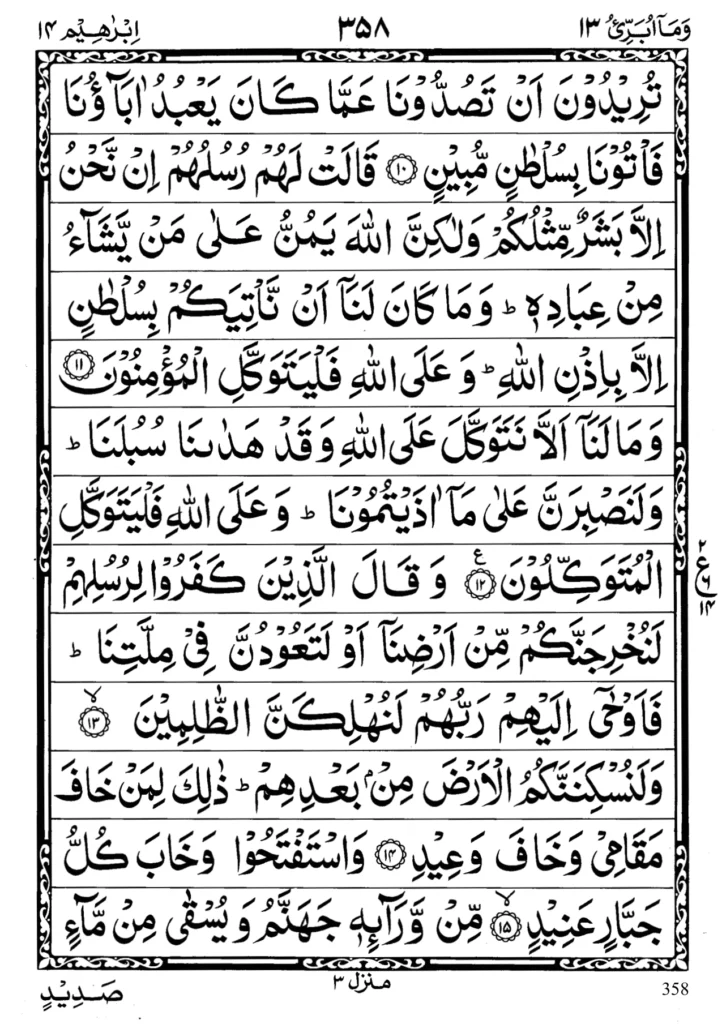 وَمَآ اُبَرِّئُ ١٣ ٣٥٨ اِبْرٰهِيْم ١٤
تُرِيْدُوْنَ اَنْ تَصُدُّوْنَا عَمَّا كَانَ يَعْبُدُ اٰبَآؤُنَا
فَاْتُوْنَا بِسُلْطٰنٍ مُّبِيْنٍ ۝١٠ قَالَتْ لَهُمْ رُسُلُهُمْ اِنْ نَّحْنُ
اِلَّا بَشَرٌ مِّثْلُكُمْ وَلٰكِنَّ اللّٰهَ يَمُنُّ عَلٰى مَنْ يَّشَآءُ
مِنْ عِبَادِهٖ ؕ وَمَا كَانَ لَنَآ اَنْ نَّاْتِيَكُمْ بِسُلْطٰنٍ
اِلَّا بِاِذْنِ اللّٰهِ ؕ وَعَلَى اللّٰهِ فَلْيَتَوَكَّلِ الْمُؤْمِنُوْنَ ۝١١
وَمَا لَنَآ اَلَّا نَتَوَكَّلَ عَلَى اللّٰهِ وَقَدْ هَدٰىنَا سُبُلَنَا ؕ
وَلَنَصْبِرَنَّ عَلٰى مَآ اٰذَيْتُمُوْنَا ؕ وَعَلَى اللّٰهِ فَلْيَتَوَكَّلِ
الْمُتَوَكِّلُوْنَ ۝١٢ ع وَقَالَ الَّذِيْنَ كَفَرُوْا لِرُسُلِهِمْ
٢
ع
٦
١٤
لَنُخْرِجَنَّكُمْ مِّنْ اَرْضِنَآ اَوْ لَتَعُوْدُنَّ فِيْ مِلَّتِنَا ؕ
فَاَوْحٰٓى اِلَيْهِمْ رَبُّهُمْ لَنُهْلِكَنَّ الظّٰلِمِيْنَ ۝١٣ ۙ
وَلَنُسْكِنَنَّكُمُ الْاَرْضَ مِنْۢ بَعْدِهِمْ ؕ ذٰلِكَ لِمَنْ خَافَ
مَقَامِيْ وَخَافَ وَعِيْدِ ۝١٤ وَاسْتَفْتَحُوْا وَخَابَ كُلُّ
جَبَّارٍ عَنِيْدٍ ۝١٥ ۙ مِّنْ وَّرَآئِهٖ جَهَنَّمُ وَيُسْقٰى مِنْ مَّآءٍ
صَدِيْدٍ
منزل ٣
358